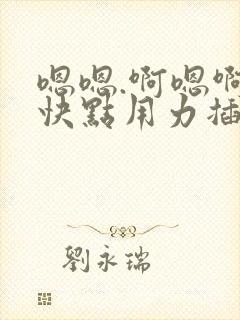 嗯嗯.啊嗯啊
快點用力插
劉永瑞